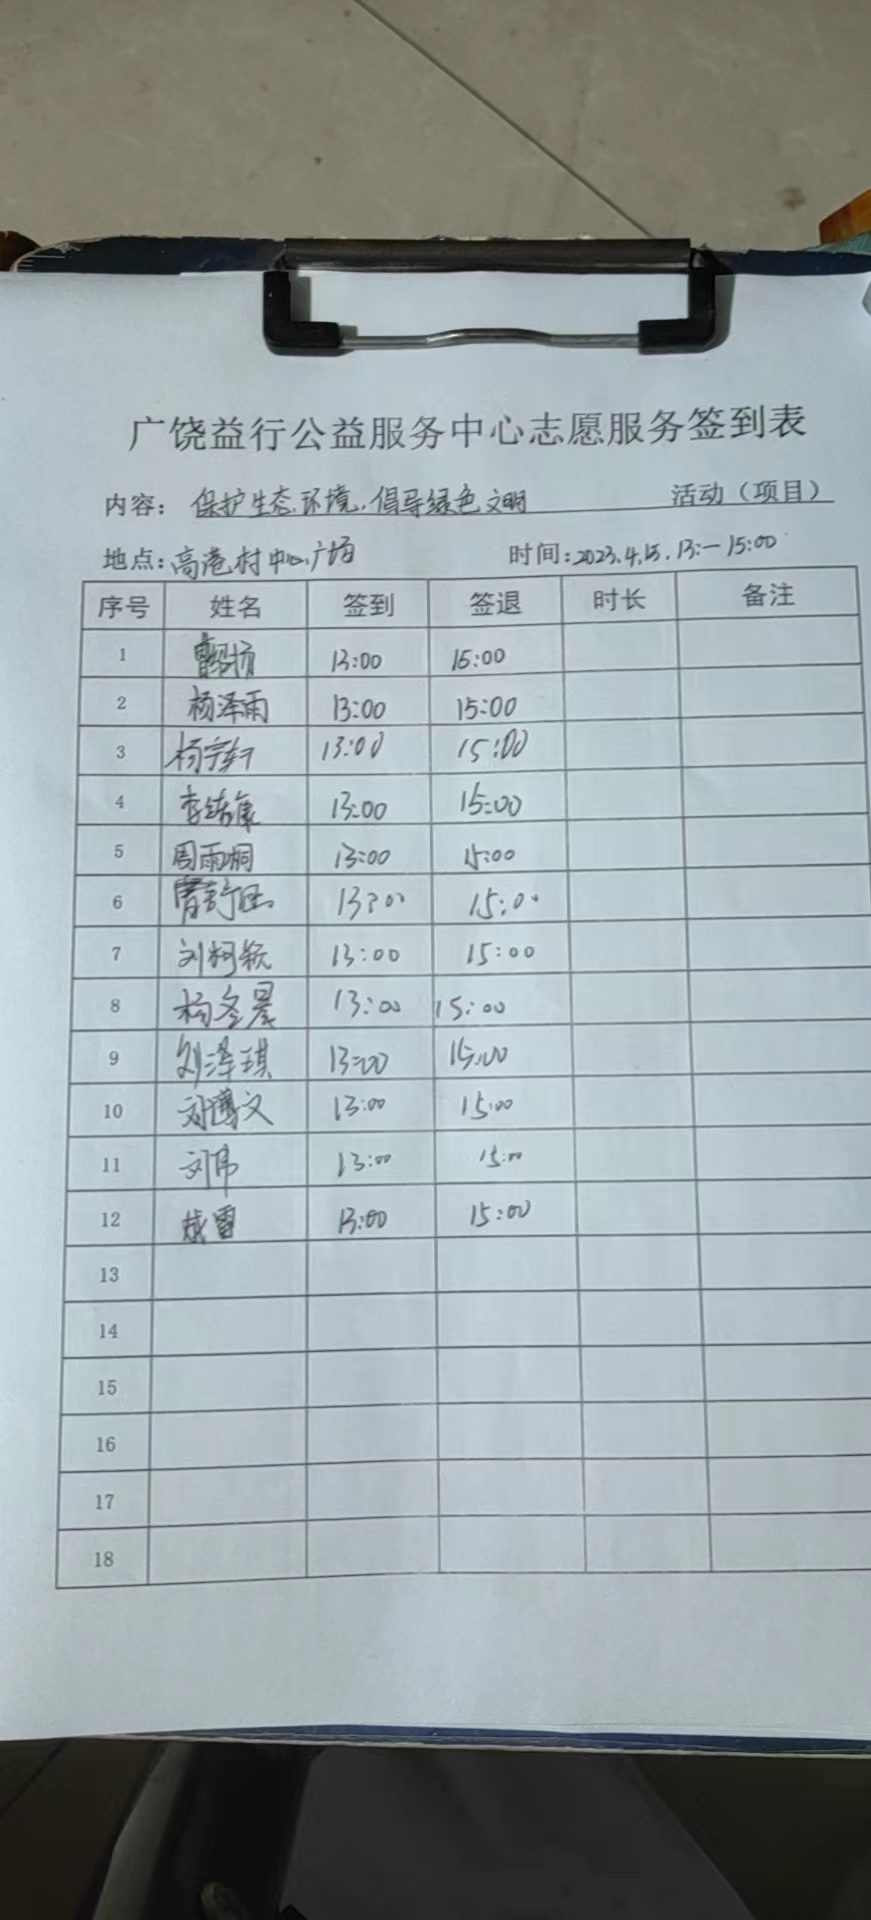 广饶益行公益服务中心志愿服务签到表
内容：保护生态环境，倡导绿色文明 活动（项目）
地点：高港村中心广场 时间：2023.4.15.13:—15:00
序号 姓名 签到 签退 时长 备注
1 13:00 15:00
2 杨泽雨 13:00 15:00
3 杨宇轩 13:00 15:00
4 13:00 15:00
5 周雨桐 13:00 15:00
6 13:00 15:00
7 刘柯钒 13:00 15:00
8 杨冬晨 13:00 15:00
9 刘泽琪 13:00 15:00
10 刘博文 13:00 15:00
11 刘伟 13:00 15:00
12 13:00 15:00
13
14
15
16
17
18